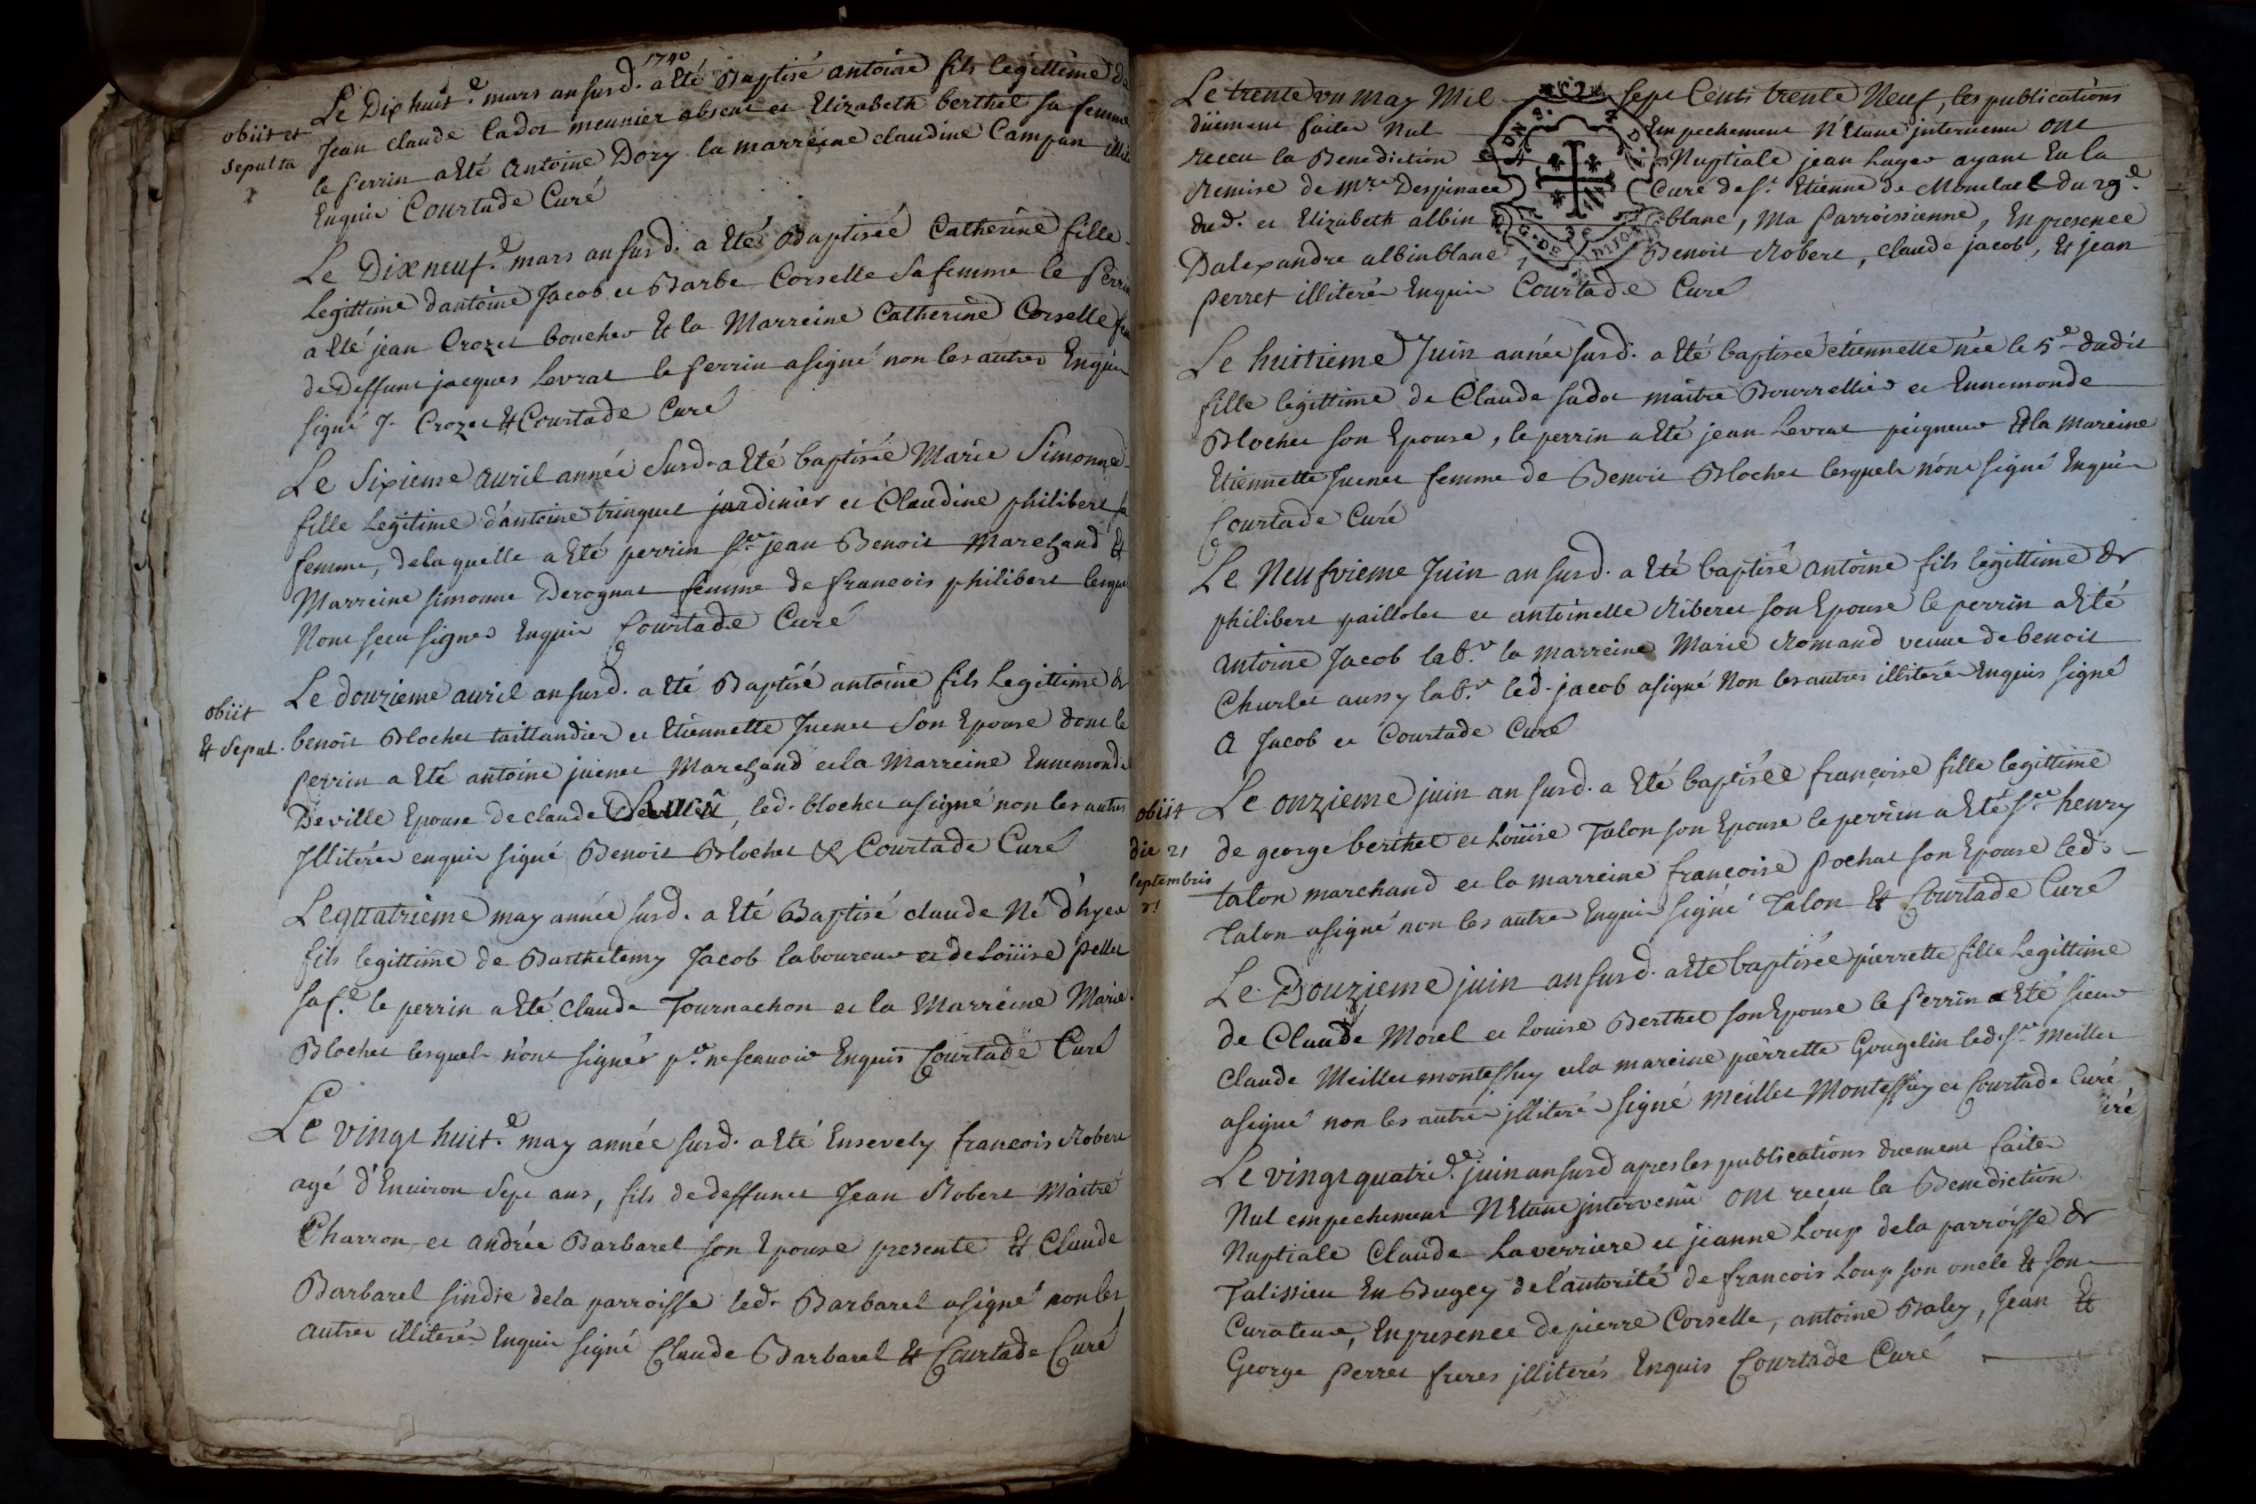 1740
Le Dix huit.e mars an susd. a Eté Baptisé antoine fils legittime de
obiit et
sepulta
Jean claude Cadot meunier absent et Elizabeth berthet sa femme
le perrin a Eté Antoine Dory la marreine claudine Campan
Enquis Courtade Curé
Le Dixneuf.e mars an susd. a Eté Baptisée Catherine fille
Legittime dantoine Jacob et Barbe Corselle sa femme le perrin
a Eté jean Crozet boucher Et la Marreine Catherine Corselle
de Deffunt jacques Levrat le perrin a signé non les autres Enquis
signé J. Crozet Et Courtade Curé
Le Sixieme auril année Susd. a Eté baptisée Marie Simonne
fille Legitime d'antoine trinquet jardinier et Claudine philibert sa
femme, delaquelle a Eté perrin s.r jean Benoit Marchand Et
Marreine simonne Derognat femme de francois philibert
Nont sceu signer Enquis Courtade Curé
Le douzieme auril an susd. a Eté Baptisé antoine fils Legittime de
obiit
Et Sepult.
benoit Blochet taillandier et Etiennette Juenet Son Epouse dont le
perrin a Eté antoine juenet Marchand et la Marreine Ennemonde
Deville Epouse de claude, led. blochet a signé non les autres
Jlliterés enquis signé Benoit Blochet & Courtade Curé
Le quatrieme may année susd. a Eté Baptisé claude Né d'hyer
fils legittime de Barthelemy Jacob laboureur et de Loüise pellet
sa f.e le perrin a Eté Claude Tournachon et la Marreine Marie
Blochet lesquels n'ont signér p.r ne scauoir Enquis Courtade Curé
Le vingt huit.e may année susd. a Eté Ensevely francois Robert
agé d'Enuiron Sept ans, fils de deffunct Jean Robert Maitre
Charron et andrée Barbarel son Epouse presente Et Claude
Barbarel sindic dela parroisse led. Barbarel a signé non les
autres illiterés Enquis signé Claude Barbarel Et Courtade Curé
Le trente vn may Mil sept Cents trente Neuf, les publications
düement faites Nul Empechement N'Etant jnteruenu ont
receu la Benediction Nuptiale jean hager ayant Eu la
Remise de mre Despinace Curé de st Etienne de Montluel du 29.e
dud. et Elizabeth albin blanc, Ma Parroissienne, En presence
Dalexandre albinblanc Benoit Robert, claude jacob, Et jean
perret illiterés Enquis Courtade Curé
Le huitieme Juin année susd. a Eté baptisée etiennette née le 5.e dudit
fille legittime de Claude sadot maitre Bourrellier et Ennemonde
Blochet son Epouse, le perrin a Eté jean Levrat peigneur Et la mareine
Etiennette Juenet femme de Benoit Blochet lesquels n'ont signé Enquis
Courtade Curé
Le Neufvieme Juin an susd. a Eté baptisé antoine fils legittime de
philibert paillolet et antoinette Riberet son Epouse le perrin a Eté
antoine Jacob lab.r la marreine Marie Romand veuue de benoit
Charlet aussy lab.r led. jacob a signé Non les autres illiteré Enquis signé
A Jacob et Courtade Curé
Le onzieme juin an susd. a Eté baptisée françoise fille legittime
obiit
die 21
septembris
de george berthet et Loüise Talon son Epouse le perrin a Eté s.r henry
talon marchand et la marreine francoise pochat son Epouse led.
talon a signé non les autres Enquis signé Talon Et Courtade Curé
Le Douzieme juin an susd. a Ete baptisée pierrette fille Legittime
de Claude Morel et Louise Berthet son Epouse le perrin a Eté sieur
Claude Meillet montessuy et la mareine pierrette Gougelin led. s.r Meillet
a signé non les autres jlliteré signé Meillet Montessuy et Courtade Curé
Le vingt quatri.e juin an susd apres les publications duement faites
Nul empechement N'Etant jntervenü ont receu la Benediction
Nuptiale Claude Laverriere et jeanne Loup dela parroisse de
Talissieu En Bugey de l'autorité de francois Loup son oncle Et son
Curateur, En presence de pierre Corselle, antoine Baley, Jean Et
George perret freres jlliterés Enquis Courtade Curé